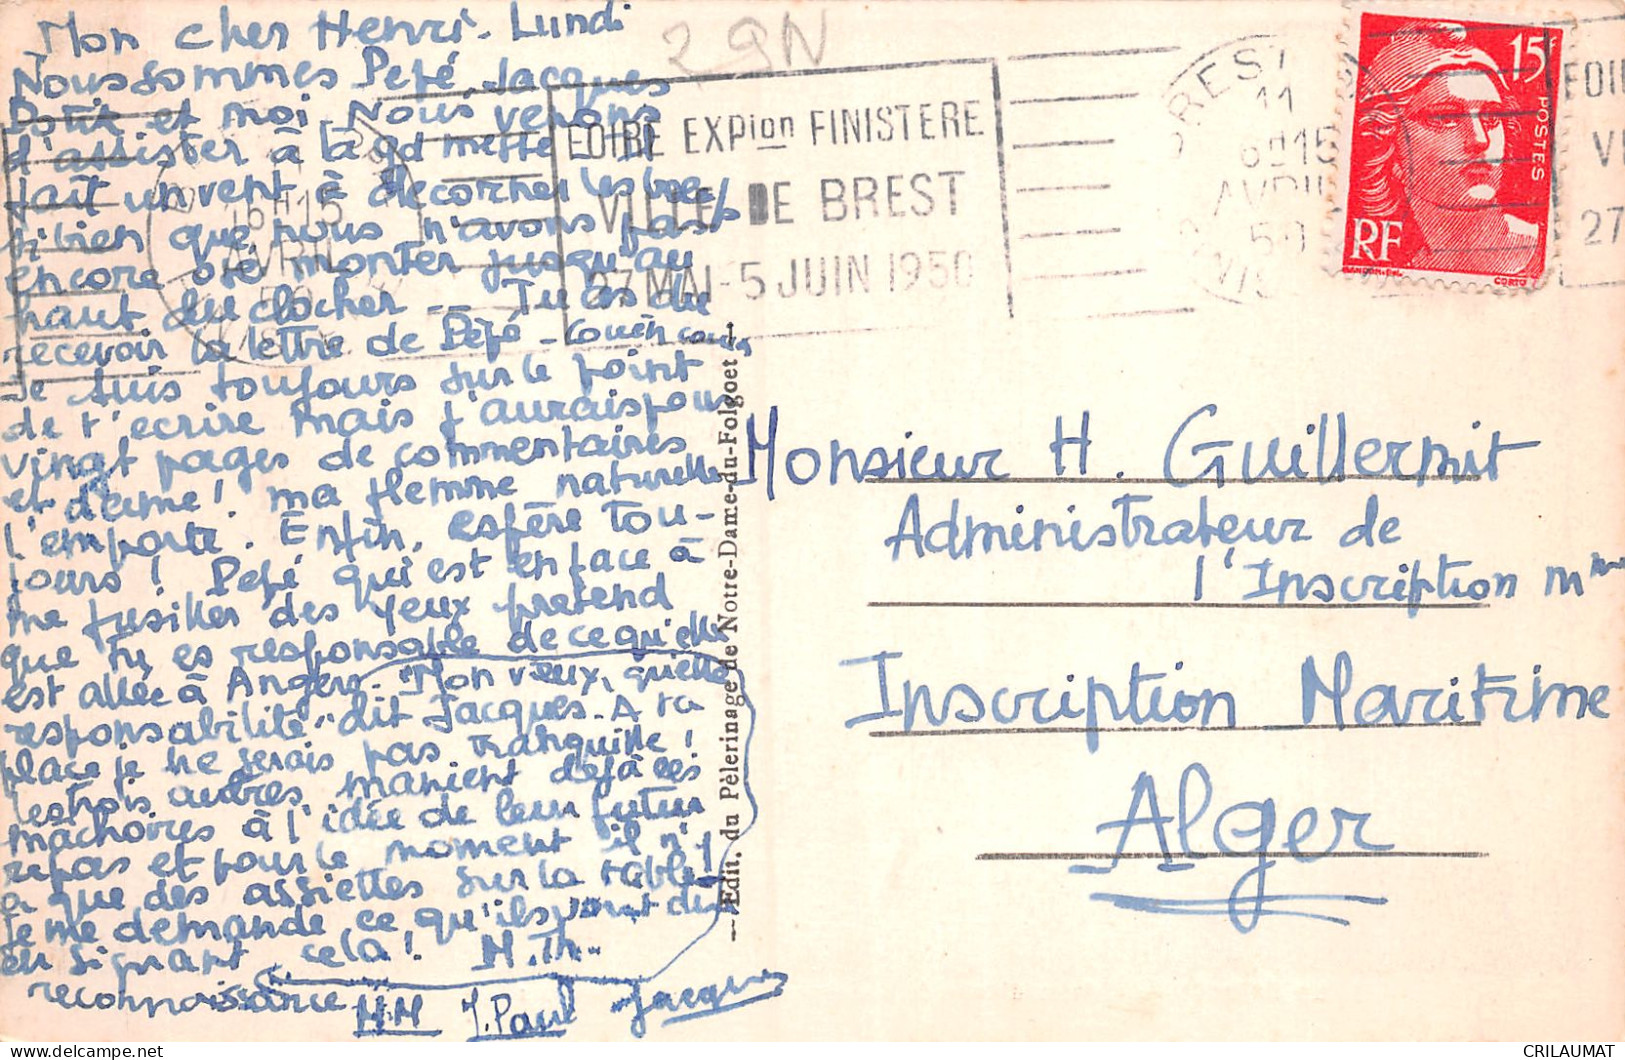 29N
Mon cher Henri. Lundi
Nous sommes Pépé, Jacques
et moi. Nous venons
d'assister à la gd messe. Il
fait un vent à décorner les
si bien que nous n'avons pas
encore osé monter jusqu'au
haut du clocher -- Tu as du
recevoir la lettre de Pépé -
Je suis toujours sur le point
de t'ecrire mais j'aurais pour
vingt pages de commentaires
et d'ame! ma flemme naturelle
l'emporte. Enfin, espère tou-
jours! Pépé qui est en face à
me fusiller des yeux pretend
que tu es responsable de ce qu'elle
est allée à Angers. "Mon vieux, quelle
responsabilité" dit Jacques. A ta
place je ne serais pas tranquille!
les trois autres manient déjà les
machoires à l'idée de leur futur
repas et pour le moment il n'y
a que des assiettes sur la table!
Je me demande ce qu'ils vont dire
en signant cela! M.Th.
reconnaissance
MM J. Paul Jacques
FOIRE EXPion FINISTERE
VILLE DE BREST
27 MAI - 5 JUIN 1950
16H15
AVRIL
50
BREST
11
16H15
AVRIL
50
FOI
VI
27
15F
POSTES
RF
GANDON-DEL.
CORTOT
— Edit. du Pèlerinage de Notre-Dame-du-Folgoet —
Monsieur H. Guillermit
Administrateur de
l'Inscription mme
Inscription Maritime
Alger
CRILAUMAT